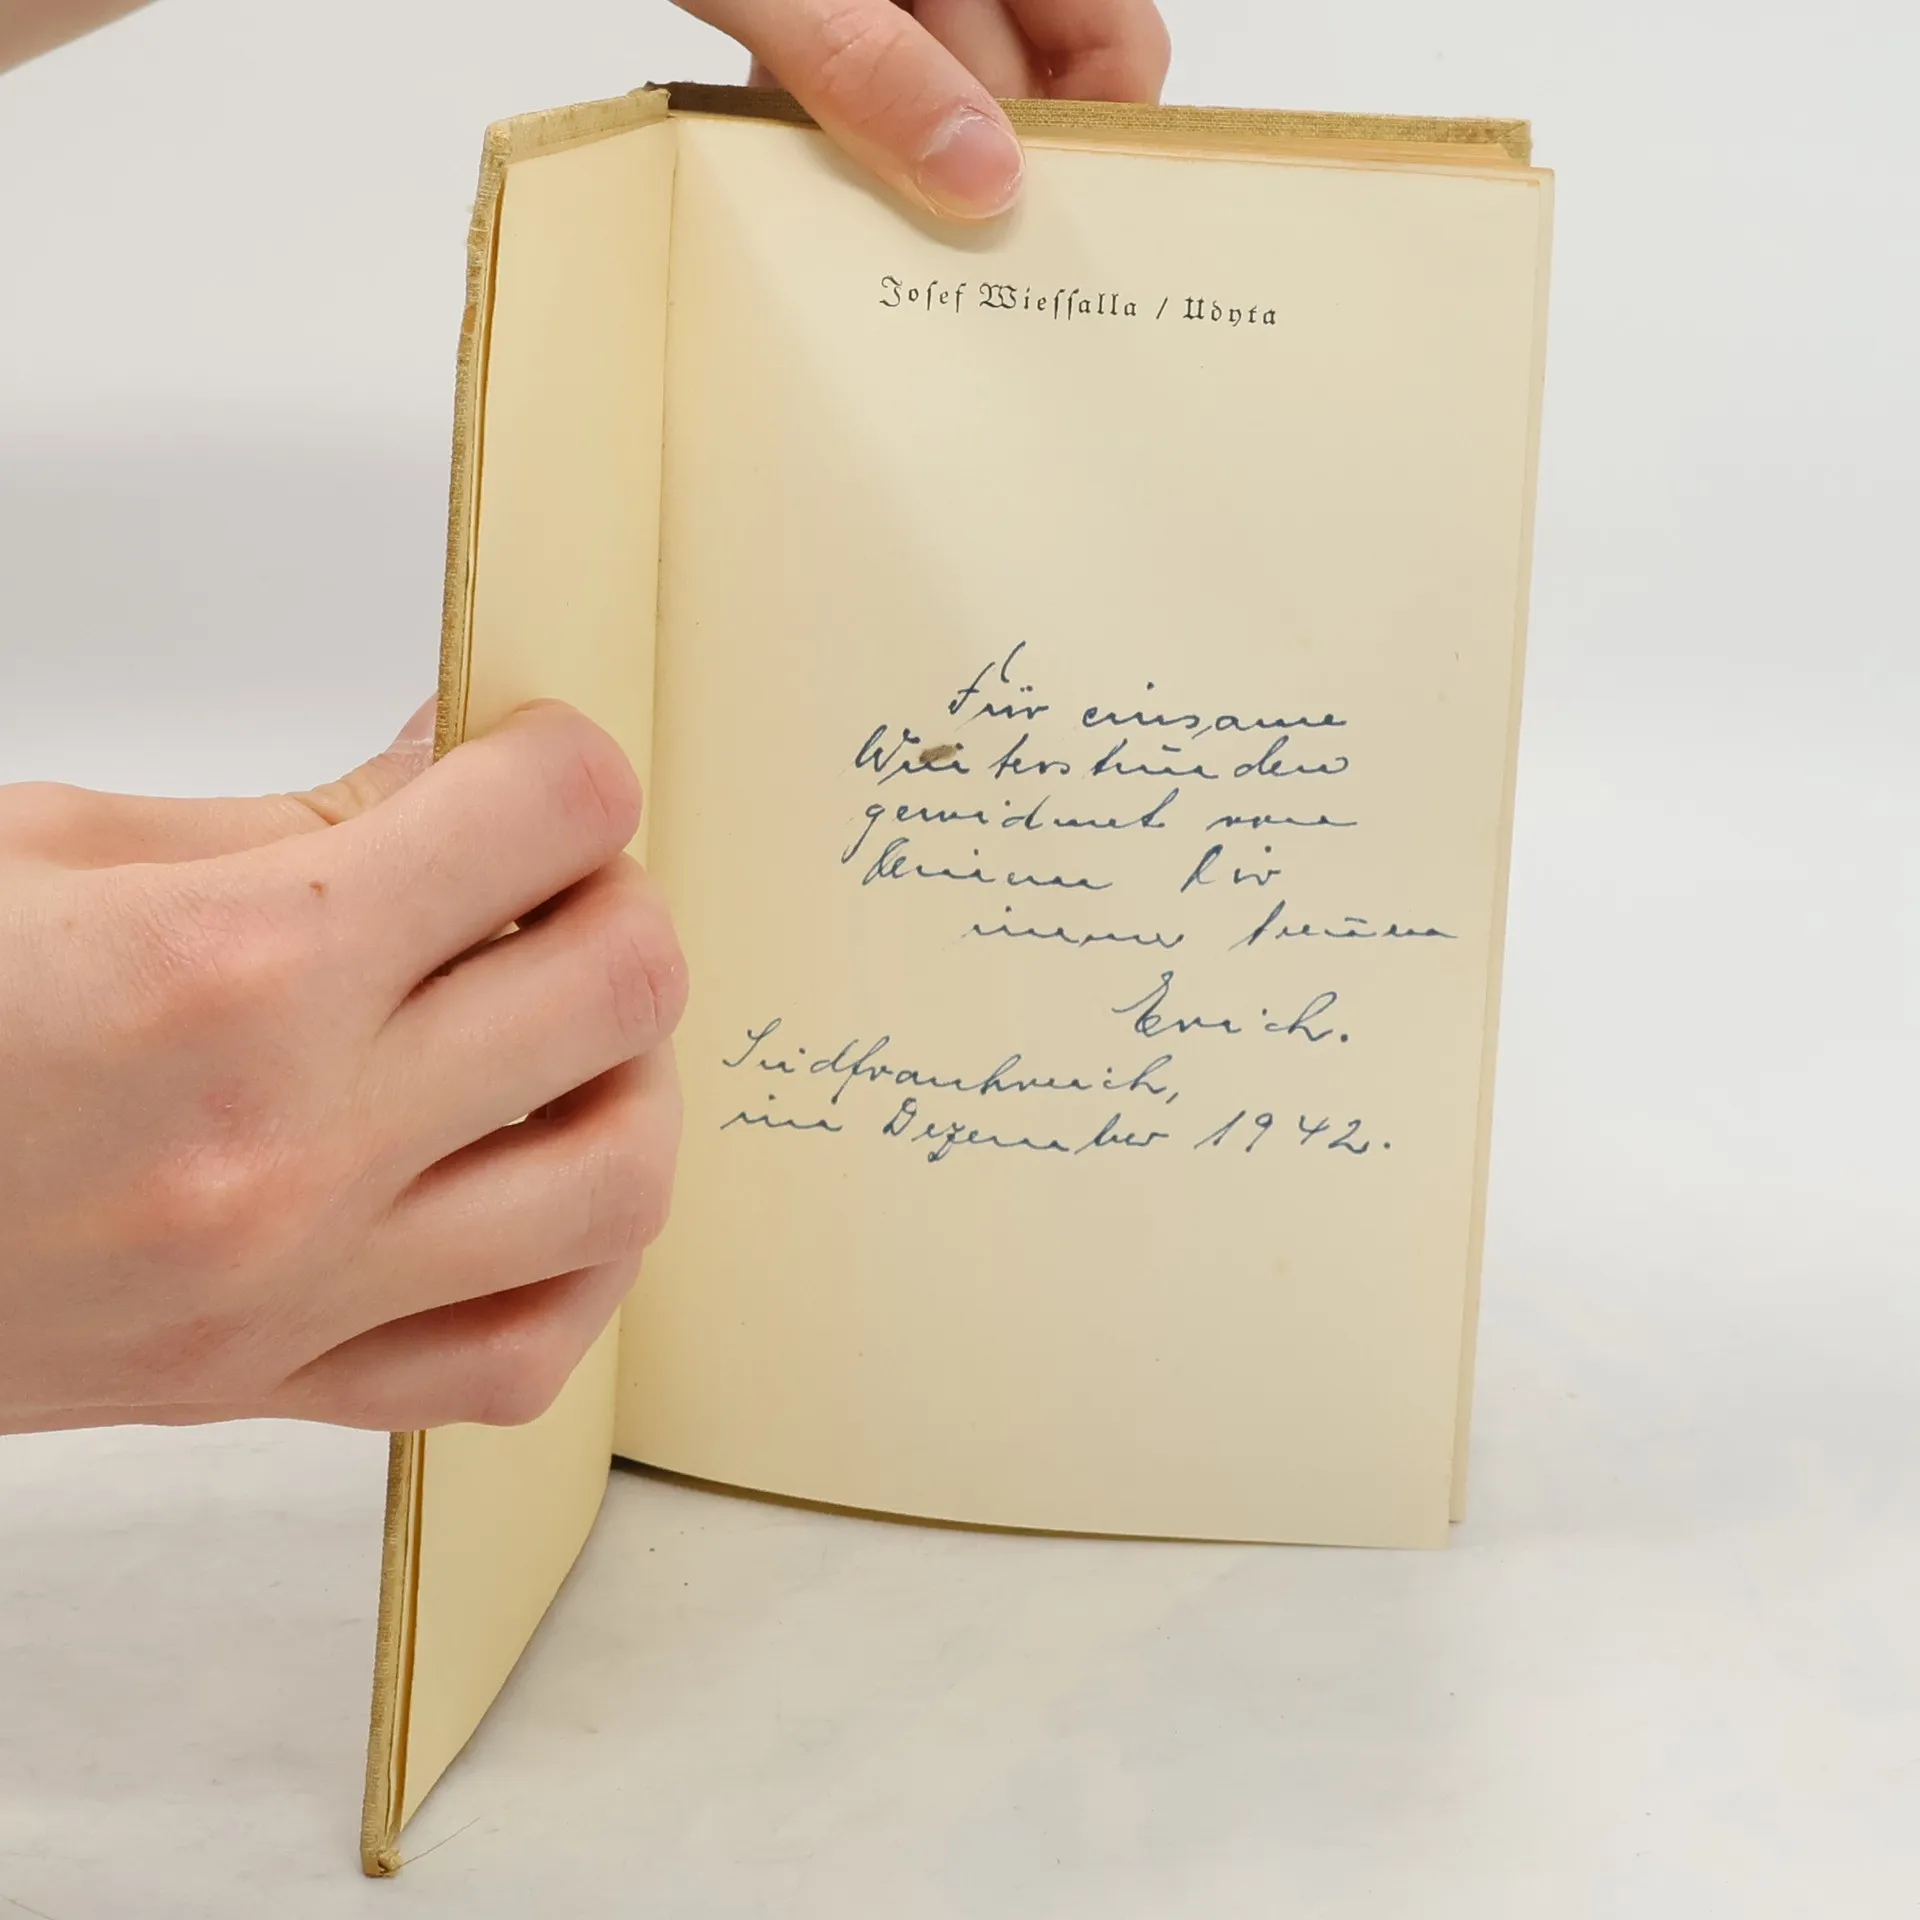 Josef Wiessalla / Udyta
Für einsame
Winterstunden
gewidmet von
Deinem Dir
immer treuen
Erich.
Südfrankreich,
im Dezember 1942.